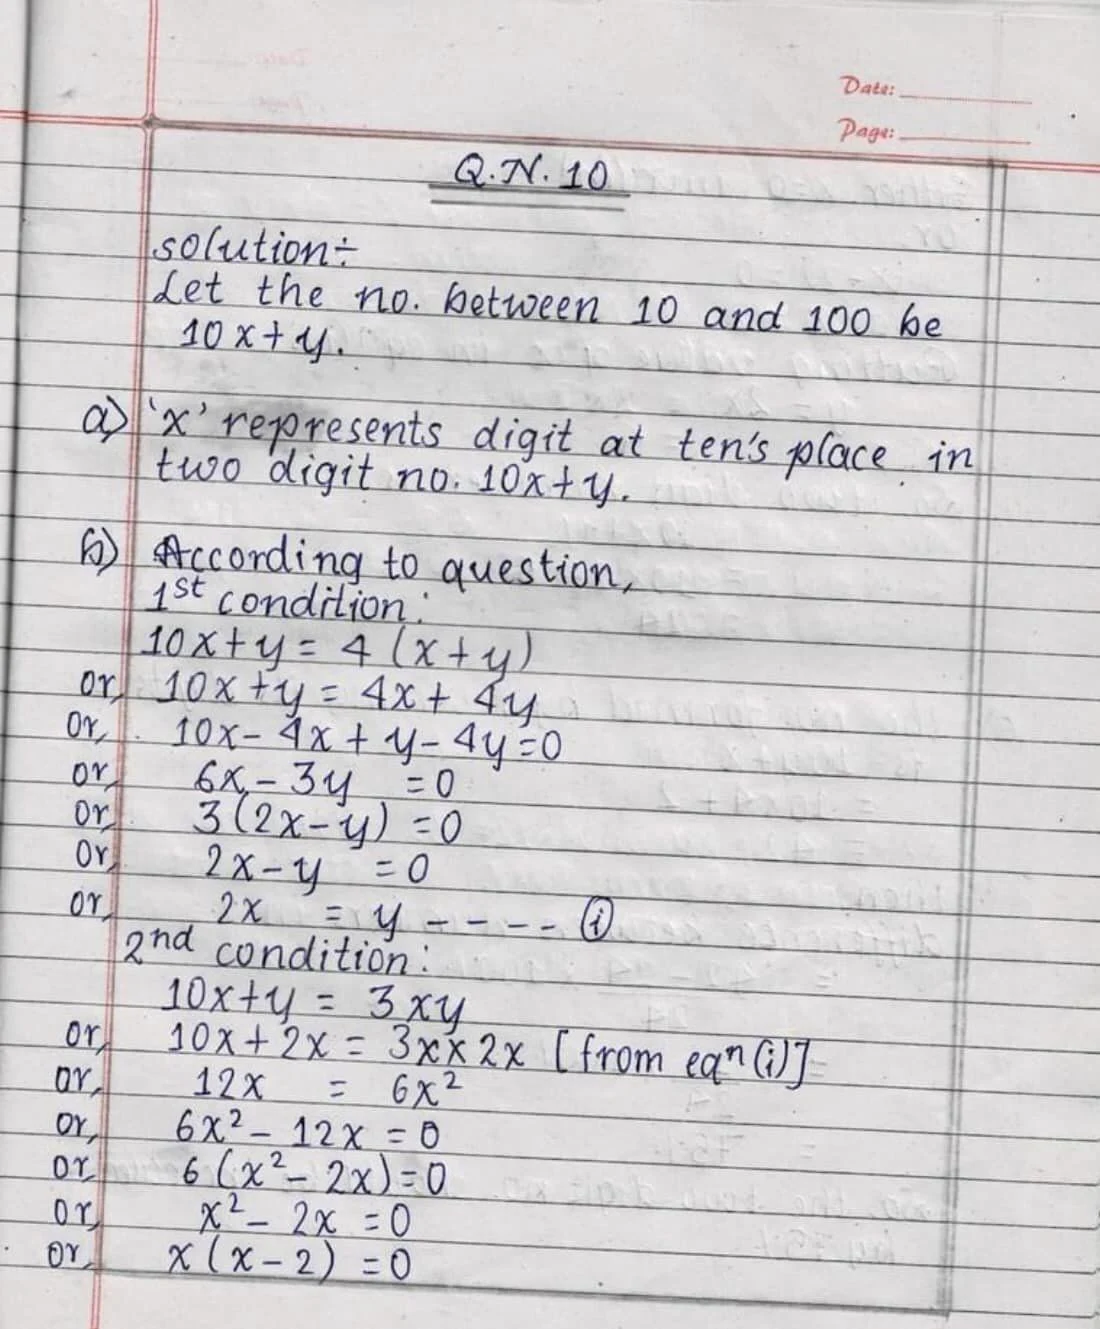 Date:
Page:
Q.N. 10
solution÷
Let the no. between 10 and 100 be
10x+y.
a) 'x' represents digit at ten's place in
two digit no. 10x+y.
b) According to question,
1st condition:
10x+y = 4 (x+y)
or, 10x+y = 4x+ 4y
or, 10x-4x+y-4y=0
or, 6x-3y =0
or, 3(2x-y) =0
or, 2x-y =0
or, 2x = y ----- (i)
2nd condition:
10x+y = 3xy
or, 10x+2x = 3x×2x [from eqn (i)]
or, 12x = 6x²
or, 6x²-12x =0
or, 6(x²-2x)=0
or, x²-2x =0
or, x(x-2) =0